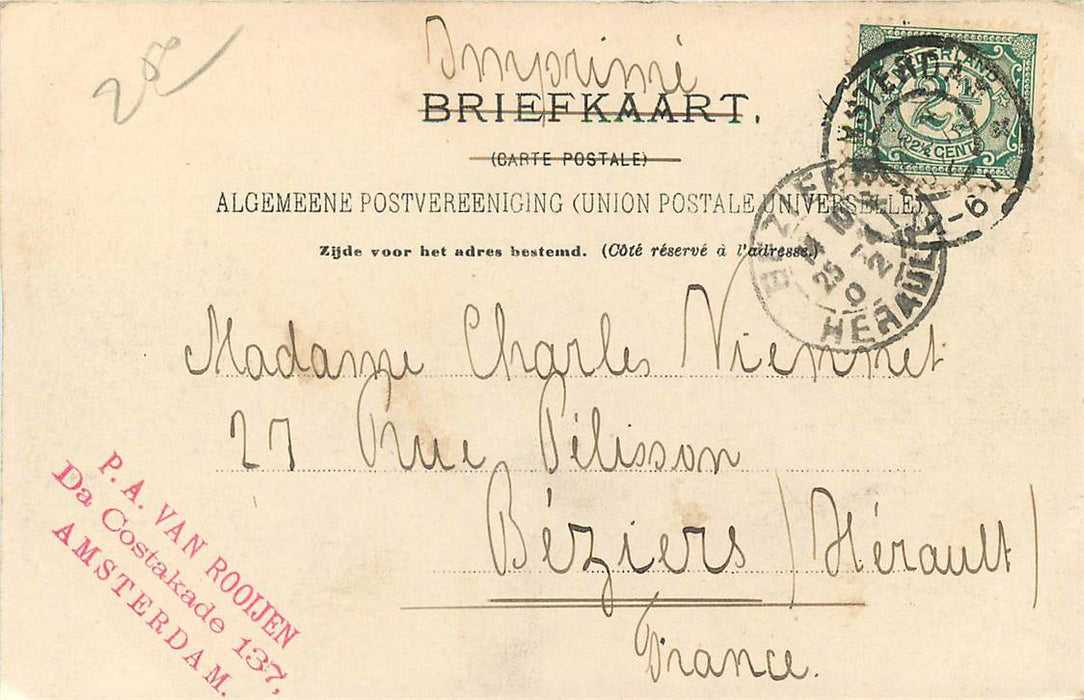 Imprimé
BRIEFKAART.
(CARTE POSTALE)
ALGEMEENE POSTVEREENIGING (UNION POSTALE UNIVERSELLE)
Zijde voor het adres bestemd. (Côté réservé à l'adresse.)
NEDERLAND
2½
2½ CENT
BEZIERS
25
HERAULT
Madame Charles Viennet
27 Rue Pélisson
Béziers (Hérault)
France.
P. A. VAN ROOIJEN
Da Costakade 137,
AMSTERDAM.